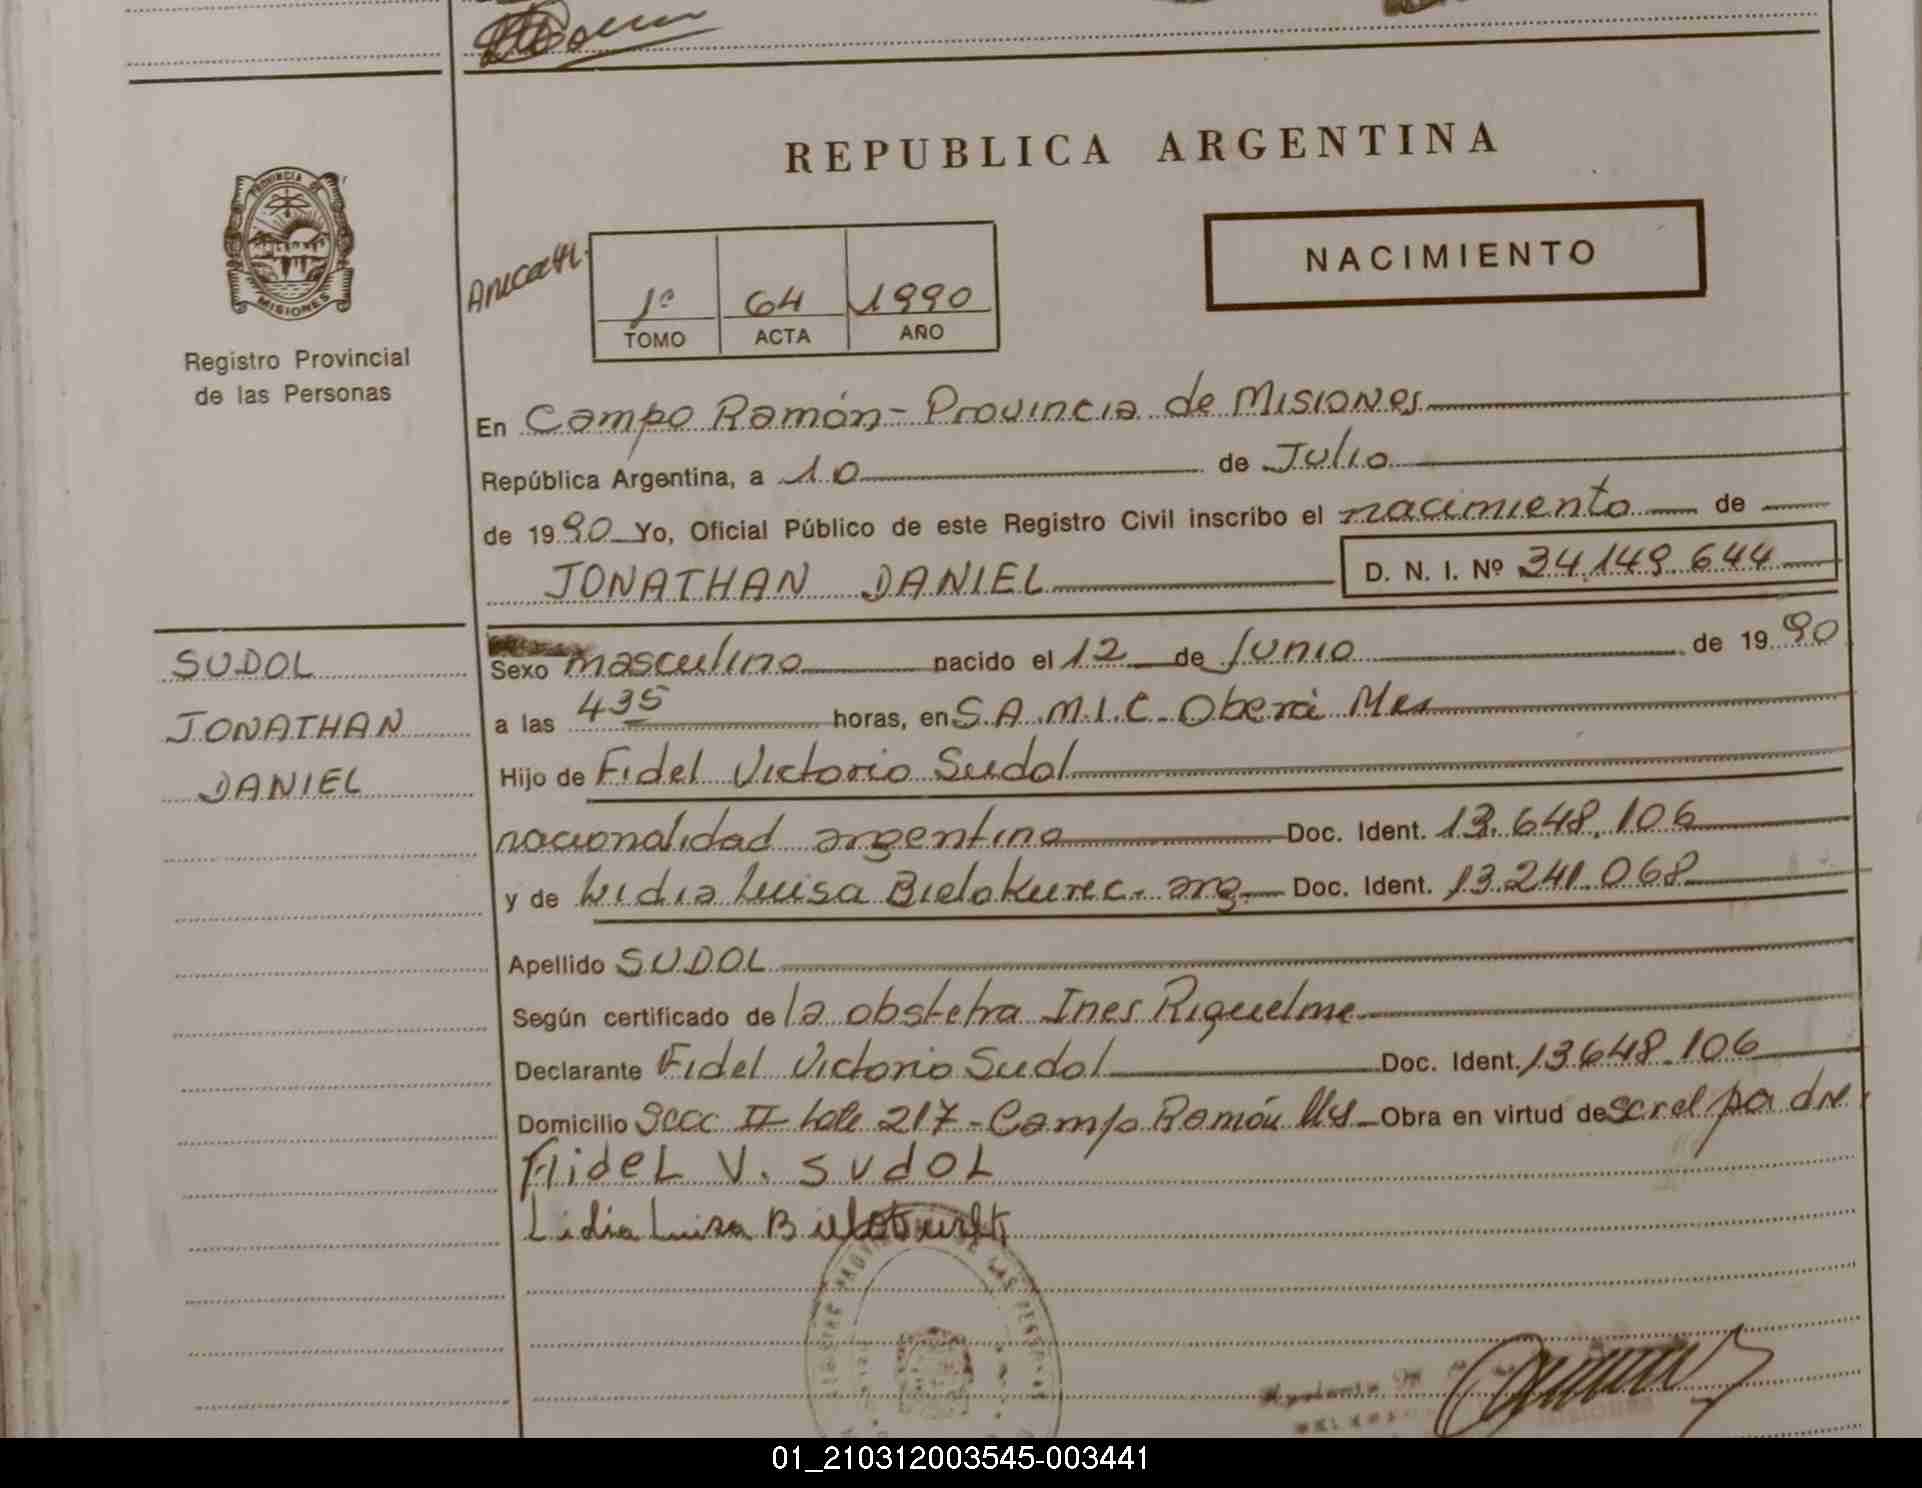 REPUBLICA ARGENTINA
PROVINCIA DE
MISIONES
Registro Provincial
de las Personas
NACIMIENTO
1º 64 1990
TOMO ACTA AÑO
En Campo Ramón - Provincia de Misiones
República Argentina, a 10 de Julio
de 1990 Yo, Oficial Público de este Registro Civil inscribo el nacimiento de
JONATHAN DANIEL D. N. I. Nº 34.149.644
SUDOL
JONATHAN
DANIEL
Sexo masculino nacido el 12 de Junio de 1990
a las 435 horas, en S.A.M.I.C. Oberá Mes
Hijo de Fidel Victorio Sudol
nacionalidad argentina Doc. Ident. 13.648.106
y de Lidia Luisa Bielakurec - arg. Doc. Ident. 13.241.068
Apellido SUDOL
Según certificado de la obstetra Ines Riquelme
Declarante Fidel Victorio Sudol Doc. Ident. 13648.106
Domicilio Secc II Lote 217 - Campo Ramón Obra en virtud de ser el padre
Fidel V. Sudol
Lidia Luisa
01_210312003545-003441